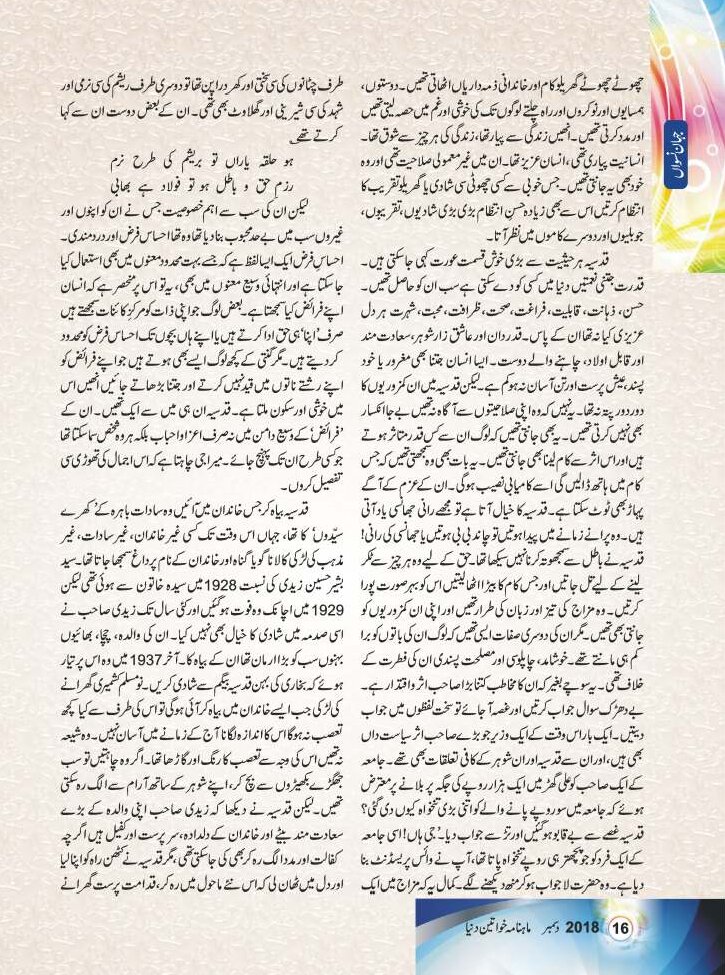 جہان نسواں
چھوٹے چھوٹے گھریلو کام اور خاندانی ذمہ داریاں اٹھاتی تھیں۔ دوستوں،
ہمسایوں اور نوکروں اور راہ چلتے لوگوں تک کی خوشی اور غم میں حصہ لیتی تھیں
اور مدد کرتی تھیں۔ انھیں زندگی سے پیار تھا، زندگی کی ہر چیز سے شوق تھا۔
انسانیت پیاری تھی، انسان عزیز تھا۔ ان میں غیر معمولی صلاحیت تھی اور وہ
خود بھی یہ جانتی تھیں۔ جس خوبی سے کسی چھوٹی سی شادی یا گھریلو تقریب کا
انتظام کرتیں اس سے بھی زیادہ حسن انتظام بڑی بڑی شادیوں، تقریبوں،
جوبلیوں اور دوسرے کاموں میں نظر آتا۔
قدسیہ ہر حیثیت سے بڑی خوش قسمت عورت کہی جاسکتی ہیں۔
قدرت جتنی نعمتیں دنیا میں کسی کو دے سکتی ہے سب ان کو حاصل تھیں۔
حسن، ذہانت، قابلیت، فراغت، صحت، ظرافت، محبت، شہرت ہر دل
عزیزی کیا نہ تھا ان کے پاس۔ قدردان اور عاشق زار شوہر، سعادت مند
اور قابل اولاد، چاہنے والے دوست۔ ایسا انسان جتنا بھی مغرور یا خود
پسند، عیش پرست اور تن آسان نہ ہو کم ہے۔ لیکن قدسیہ میں ان کمزوریوں کا
دور دور پتہ نہ تھا۔ یہ نہیں کہ وہ اپنی صلاحیتوں سے آگاہ نہ تھیں بے جا انکسار
بھی نہیں کرتی تھیں۔ یہ بھی جانتی تھیں کہ لوگ ان سے کس قدر متاثر ہوتے
ہیں اور اس اثر سے کام لینا بھی جانتی تھیں۔ یہ بات بھی وہ سمجھتی تھیں کہ جس
کام میں ہاتھ ڈالیں گی اسے کامیابی نصیب ہوگی۔ ان کے عزم کے آگے
پہاڑ بھی ٹوٹ سکتا ہے۔ قدسیہ کا خیال آتا ہے تو مجھے رانی جھانسی یاد آتی
ہیں۔ وہ پرانے زمانے میں پیدا ہوتیں تو چاند بی بی ہوتیں یا جھانسی کی رانی!
قدسیہ نے باطل سے سمجھوتہ کرنا نہیں سیکھا تھا۔ حق کے لیے وہ ہر چیز سے ٹکر
لینے کے لیے تل جاتیں اور جس کام کا بیڑا اٹھا لیتیں اس کو بہر صورت پورا
کرتیں۔ وہ مزاج کی تیز اور زبان کی طرار تھیں اور اپنی ان کمزوریوں کو
جانتی بھی تھیں۔ مگر ان کی دوسری صفات ایسی تھیں کہ لوگ ان کی باتوں کو برا
کم ہی مانتے تھے۔ خوشامد، چاپلوسی اور مصلحت پسندی ان کی فطرت کے
خلاف تھی۔ یہ سوچے بغیر کہ ان کا مخاطب کتنا بڑا صاحب اثر و اقتدار ہے۔
بے دھڑک سوال جواب کرتیں اور غصہ آجائے تو سخت لفظوں میں جواب
دیتیں۔ ایک بار اس وقت کے ایک وزیر جو بڑے صاحب اثر سیاست داں
بھی ہیں، اور ان سے قدسیہ اور ان شوہر کے کافی تعلقات بھی تھے۔ جامعہ
کے ایک صاحب کو علی گڑھ میں ایک ہزار روپے کی جگہ پر بلانے پر معترض
ہوئے کہ جامعہ میں سو روپے پانے والے کو اتنی بڑی تنخواہ کیوں دی گئی؟
قدسیہ غصے سے بے قابو ہوگئیں اور تڑ سے جواب دیا۔ 'جی ہاں! اسی جامعہ
کے ایک فرد کو جو پچھتر ہی روپے تنخواہ پاتا تھا، آپ نے وائس پریسڈنٹ بنا
دیا ہے۔ وہ حضرت لاجواب ہوکر منھ دیکھنے لگے۔ کمال یہ کہ مزاج میں ایک
طرف چٹانوں کی سی سختی اور کھردراپن تھا تو دوسری طرف ریشم کی سی نرمی اور
شہد کی سی شیرینی اور گھلاوٹ بھی تھی۔ ان کے بعض دوست ان سے کہا
کرتے تھے
ہو حلقہ یاراں تو بریشم کی طرح نرم
رزم حق و باطل ہو تو فولاد ہے بھابی
لیکن ان کی سب سے اہم خصوصیت جس نے ان کو اپنوں اور
غیروں سب میں بے حد محبوب بنا دیا تھا وہ تھا احساس فرض اور دردمندی۔
احساس فرض ایک ایسا لفظ ہے کہ جسے بہت محدود معنوں میں بھی استعمال کیا
جاسکتا ہے اور انتہائی وسیع معنوں میں بھی، یہ تو اس پر منحصر ہے کہ انسان
اپنے فرائض کیا سمجھتا ہے۔ بعض لوگ جو اپنی ذات کو مرکز کائنات سمجھتے ہیں
صرف 'اپنا' ہی حق ادا کرتے ہیں یا اپنے ہاں بچوں تک احساس فرض کو محدود
کردیتے ہیں۔ مگر گنتی کے کچھ لوگ ایسے بھی ہوتے ہیں جو اپنے فرائض کو
اپنے رشتے ناتوں میں قید نہیں کرتے اور جتنا بڑھاتے جائیں انھیں اس
میں خوشی اور سکون ملتا ہے۔ قدسیہ ان ہی میں سے ایک تھیں۔ ان کے
'فرائض' کے وسیع دامن میں نہ صرف اعزا و احباب بلکہ ہر وہ شخص سما سکتا تھا
جو کسی طرح ان تک پہنچ جائے۔ میرا جی چاہتا ہے کہ اس اجمال کی تھوڑی سی
تفصیل کروں۔
قدسیہ بیاہ کر جس خاندان میں آئیں وہ سادات باہرہ کے 'کھرے
سیّدوں' کا تھا، جہاں اس وقت تک کسی غیر خاندان، غیر سادات، غیر
مذہب کی لڑکی کا لانا گویا گناہ اور خاندان کے نام پر داغ سمجھا جاتا تھا۔ سید
بشیر حسین زیدی کی نسبت 1928 میں سیدہ خاتون سے ہوئی تھی لیکن
1929 میں اچانک وہ فوت ہوگئیں اور کئی سال تک زیدی صاحب نے
اسی صدمہ میں شادی کا خیال بھی نہیں کیا۔ ان کی والدہ، چچا، بھائیوں
بہنوں سب کو بڑا ارمان تھا ان کے بیاہ کا۔ آخر 1937 میں وہ اس پر تیار
ہوئے کہ بخاری کی بہن قدسیہ بیگم سے شادی کریں۔ نو مسلم کشمیری گھرانے
کی لڑکی جب ایسے خاندان میں بیاہ کر آئی ہوگی تو اس کی طرف سے کیا کچھ
تعصب نہ ہوگا اس کا اندازہ لگانا آج کے زمانے میں آسان نہیں۔ وہ شیعہ
نہ تھیں اس کی وجہ سے تعصب کا رنگ اور گاڑھا تھا۔ اگر وہ چاہتیں تو سب
جھگڑے بکھیڑوں سے بچ کر، اپنے شوہر کے ساتھ آرام سے الگ رہ سکتی
تھیں۔ لیکن قدسیہ نے دیکھا کہ زیدی صاحب اپنی والدہ کے بڑے
سعادت مند بیٹے اور خاندان کے دلدادہ، سرپرست اور کفیل ہیں اگرچہ
کفالت اور مدد الگ رہ کر بھی کی جاسکتی تھی، مگر قدسیہ نے کٹھن راہ کو اپنا لیا
اور دل میں ٹھان لی کہ اس نئے ماحول میں رہ کر، قدامت پرست گھرانے
ماہنامہ خواتین دنیا دسمبر 2018 16